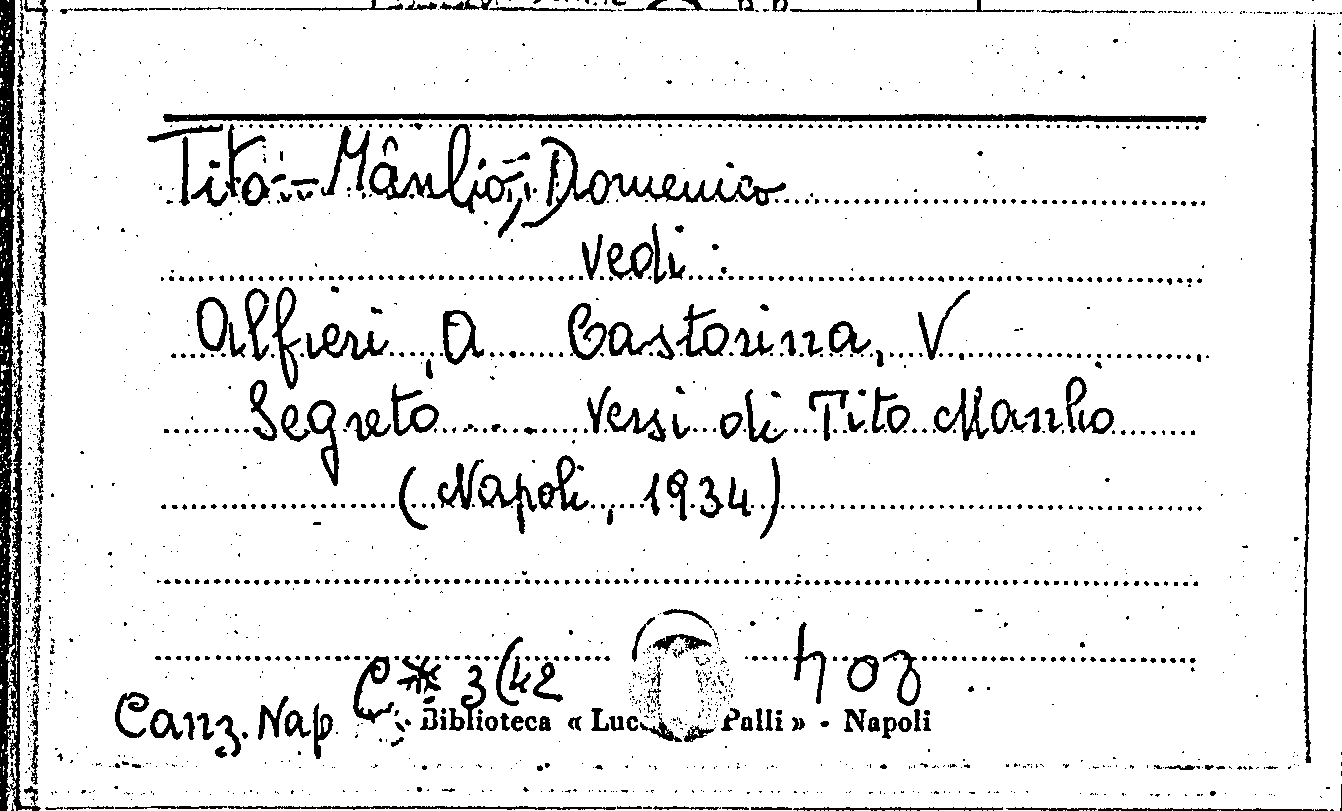 Tito-Mânlio, Domenico
vedi:
Alfieri, A. Castorina, V.
Segreto.... versi di Tito Manlio
(Napoli, 1934)
Canz. Nap C* 3(42
Biblioteca « Palli » - Napoli